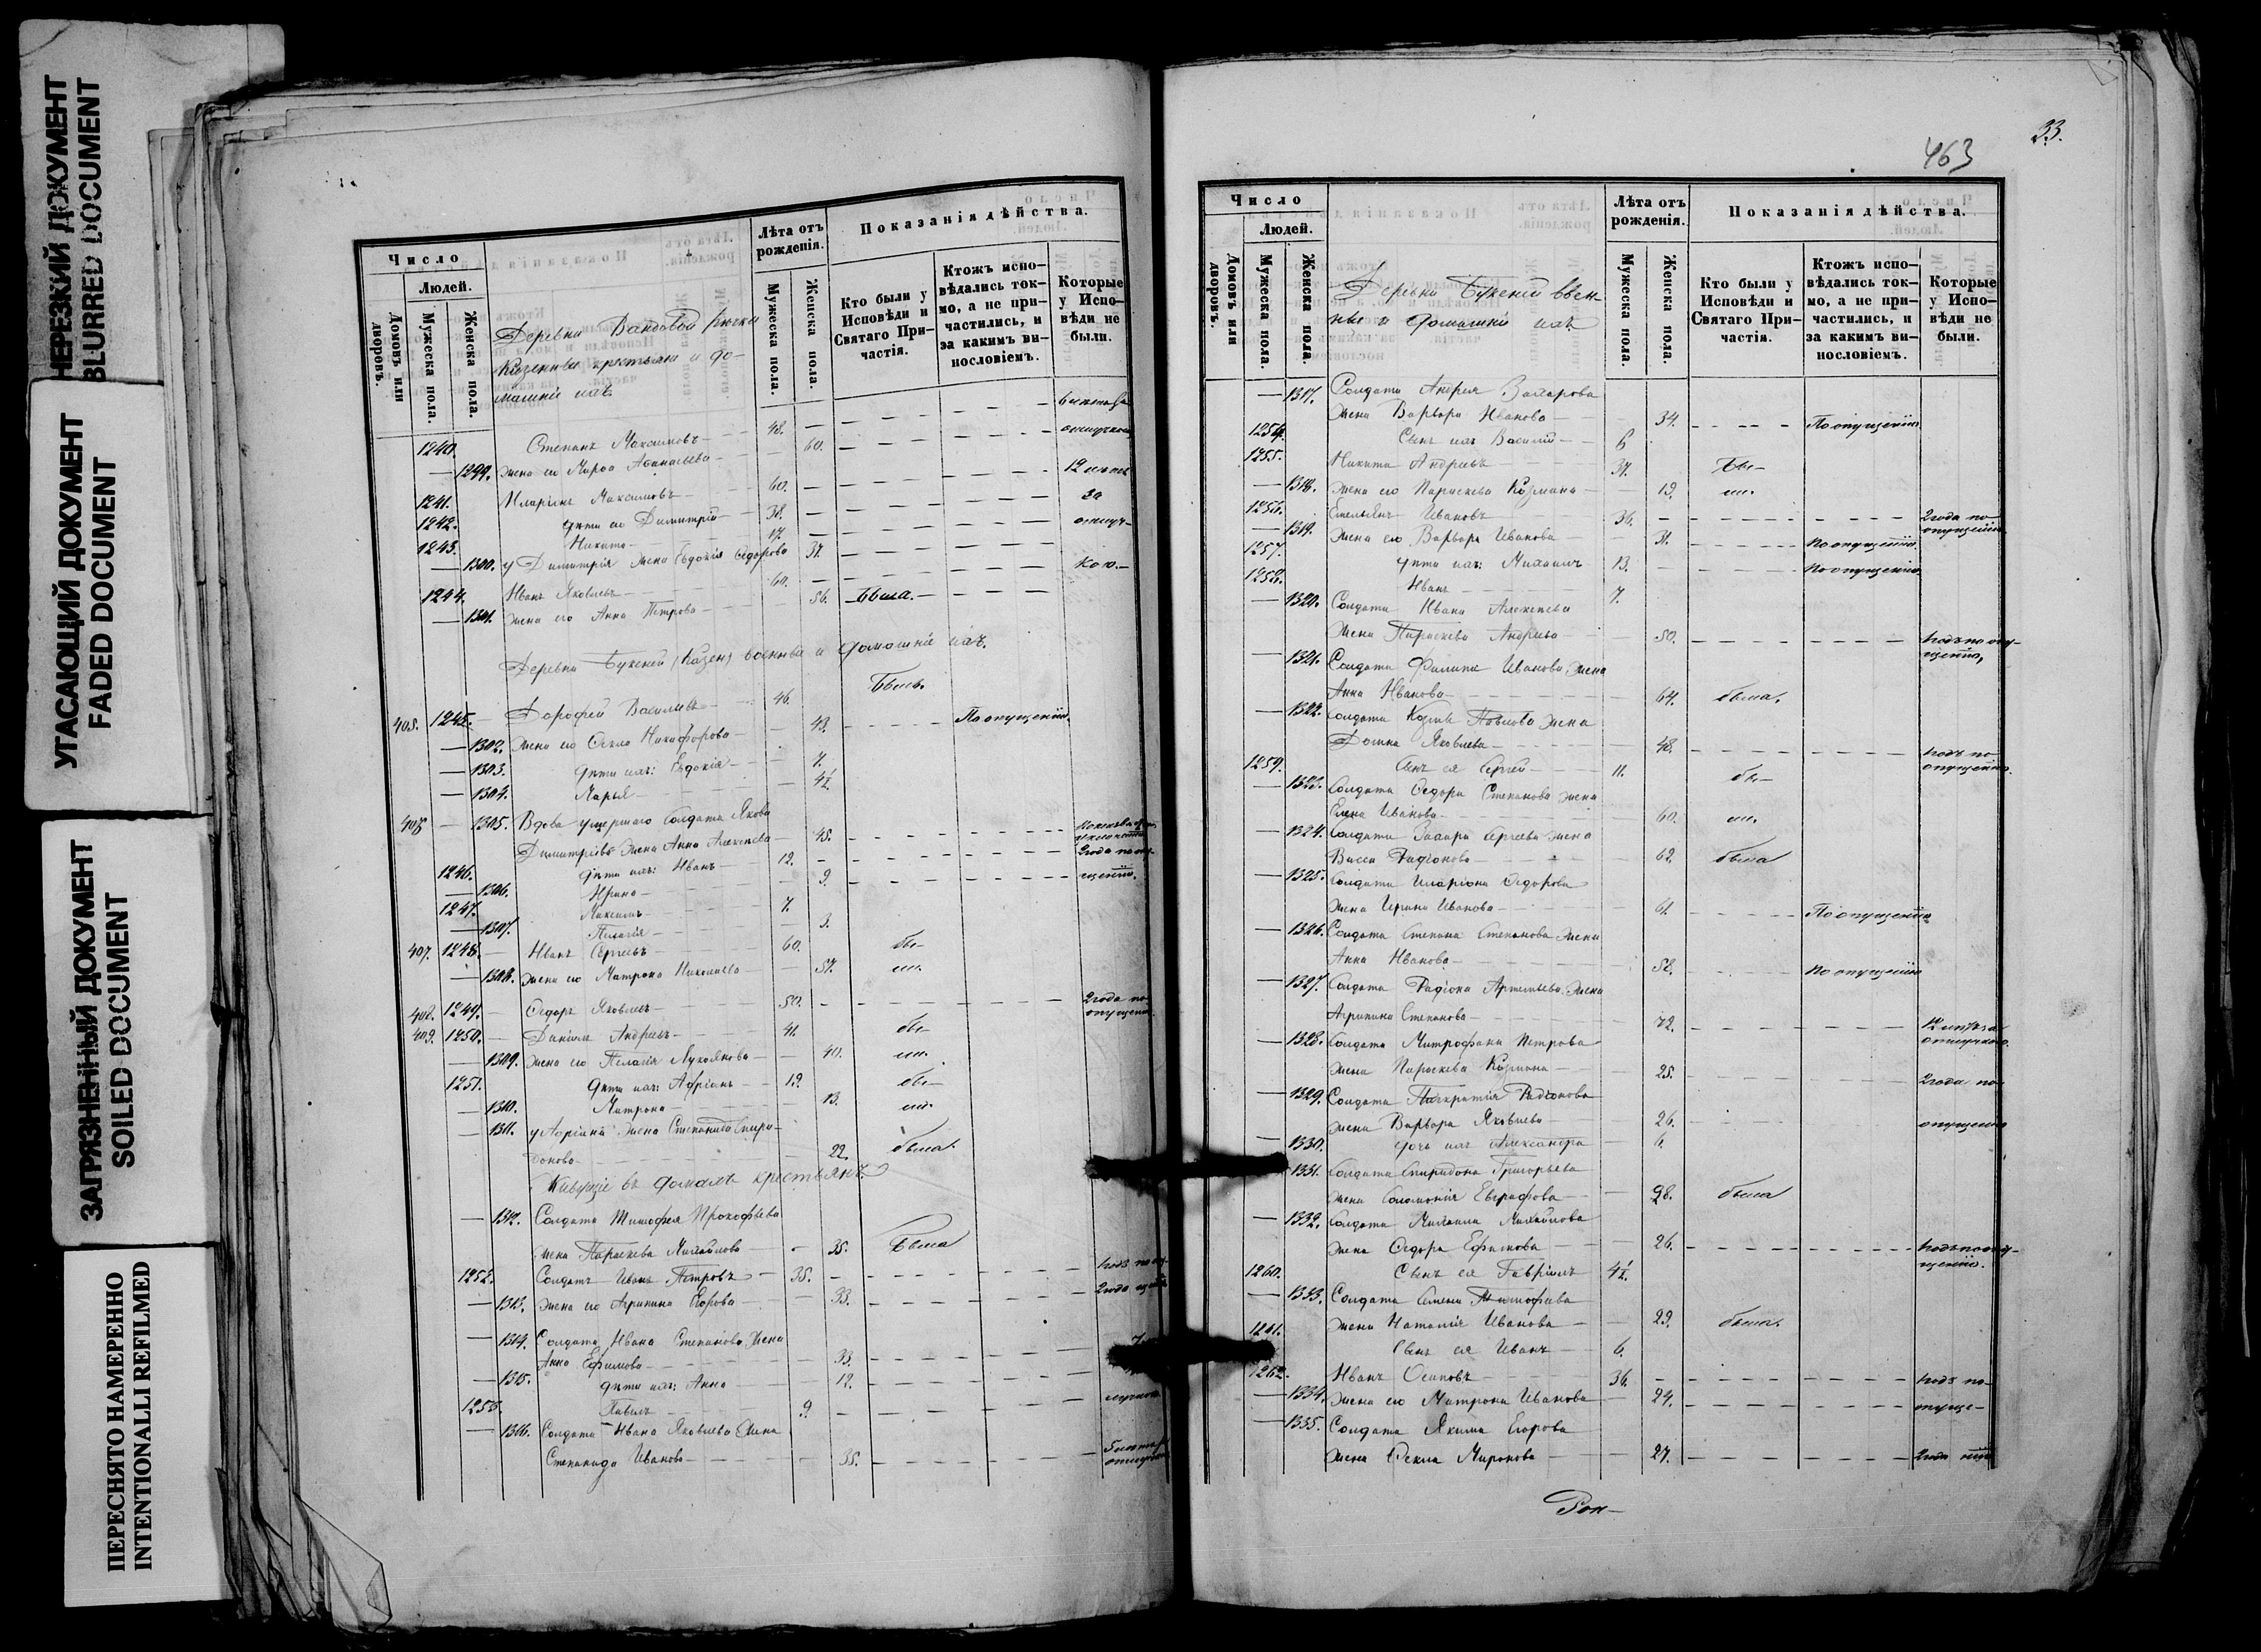 НЕРЕЗКИЙ ДОКУМЕНТ
BLURRED DOCUMENT
УГАСАЮЩИЙ ДОКУМЕНТ
FADED DOCUMENT
ЗАГРЯЗНЕННЫЙ ДОКУМЕНТ
SOILED DOCUMENT
ПЕРЕСНЯТО НАМЕРЕННО
INTENTIONALLI REFILMED
Число
Людей.
Домовъ или дворовъ.
Мужеска пола.
Женска пола.
Лѣта отъ рожденія.
Мужеска пола.
Женска пола.
Показанія дѣйства.
Кто были у Исповѣди и Святаго Причастія.
Ктожъ исповѣдались токмо, а не причастились, и за какимъ винословіемъ.
Которые у Исповѣди не были.
Деревни
крестьяне и до-
машніе ихъ
1240. Степанъ Максимовъ 48.
1299. Жена его Марѳа Аѳанасьева 60.
1241. Иларіонъ Максимовъ 60. 12 лѣтъ
1242. Дѣти его Димитрій 38. за
1243. Никита 17. отлуч-
1300. у Димитрія жена Евдокія Ѳедорова 37.
1244. Иванъ Яковлевъ 60. кою.
1301. Жена его Анна Петрова 56. Была.
Деревни военные и домашніе ихъ.
405. 1245. Дорофей Васильевъ 46. Былъ.
1302. Жена его Ѳекла Никифорова 43. По опущенію.
1303. Дѣти ихъ: Евдокія 7.
1304. Марья 4½
406 1305. Вдова умершаго солдата Якова
Димитріева жена Анна Алексѣева 45.
1246. Дѣти ихъ: Иванъ 12. 2 года по опу-
1306. Ирина 9. щенію.
1247. Максимъ 7.
1307. Пелагія 3.
407. 1248. Иванъ Сергѣевъ 60. бы-
1308. Жена его Матрона Николаева 57. ли.
408. 1249. Ѳедоръ Яковлевъ 50. 2 года по опущенію
409. 1250. Даніилъ Андреевъ 41. бы-
1309. Жена его Пелагія Лукоянова 40. ли.
1251. Дѣти ихъ: Адріанъ 19. бы-
1310. Матрона 13. ли.
1311. у Адріана жена Степанида Спири-
донова 22. была.
Живущіе въ домахъ крестьянъ
1312. Солдата Тимофея Прокофьева
жена Параскева Михайлова 35. Была
1252. Солдатъ Иванъ Петровъ 35.
1313. Жена его Агрипина Егорова 33.
1314. Солдата Ивана Степанова жена
Анна Ефимова 33.
1315. Дѣти ихъ: Анна 12.
1253. Павелъ 9.
1316. Солдата Ивана Яковлева жена
Степанида Иванова 35.
463
33.
Число
Людей.
Домовъ или дворовъ.
Мужеска пола.
Женска пола.
Лѣта отъ рожденія.
Мужеска пола.
Женска пола.
Показанія дѣйства.
Кто были у Исповѣди и Святаго Причастія.
Ктожъ исповѣдались токмо, а не причастились, и за какимъ винословіемъ.
Которые у Исповѣди не были.
Деревни воен-
ные и домашніе ихъ
1317. Солдата Андрея Захарова
Жена Варвара Иванова 34. По опущенію.
1254. Сынъ ихъ Василій 6
1255. Никита Андреевъ 37. Бы-
1318. Жена его Параскева Козмина 19. ли.
1256. Емельянъ Ивановъ 36. 2 года по опущенію.
1319. Жена его Варвара Иванова 31. По опущенію
1257. Дѣти ихъ: Михаилъ 13. По опущенію
1258. Иванъ 7.
1320. Солдата Ивана Алексѣева
Жена Параскева Андреева 50. годъ по опу-
щенію,
1321. Солдата Филипа Иванова жена
Анна Иванова 64. была.
1322. Солдата Козмы Павлова жена
Домна Яковлева 48. годъ по опущенію.
1259. Сынъ ея Сергѣй 11. бы-
1323. Солдата Ѳедора Степанова жена
Елена Иванова 60. ли.
1324. Солдата Захара Сергѣева жена
Васса Радіонова 62. была
1325. Солдата Иларіона Ѳедорова
Жена Ирина Иванова 61. По опущенію
1326. Солдата Степана Степанова жена
Анна Иванова 58. По опущенію
1327. Солдата Радіона Артемьева жена
Агрипина Степанова 72.
1328. Солдата Митрофана Петрова
Жена Параскева Козмина 25. 2 года по
1329. Солдата Панкратія Радіонова
Жена Варвара Яковлева 26. опущенію
1330. Дочь ихъ Александра 6.
1331. Солдата Спиридона Григорьева
Жена Соломонія Евграфова 28. была
1332. Солдата Михаила Михайлова
Жена Ѳедора Ефимова 26. годъ по опу-
щенію.
1260. Сынъ ея Гавріилъ 4½.
1333. Солдата Семена Тимофеева
Жена Наталія Иванова 29. была.
1261. Сынъ ея Иванъ 6.
1262. Иванъ Осиповъ 36. годъ по
1334. Жена его Матрона Иванова 24. опуще-
1335. Солдата Якима Егорова
Жена Ѳекла Миронова 27.